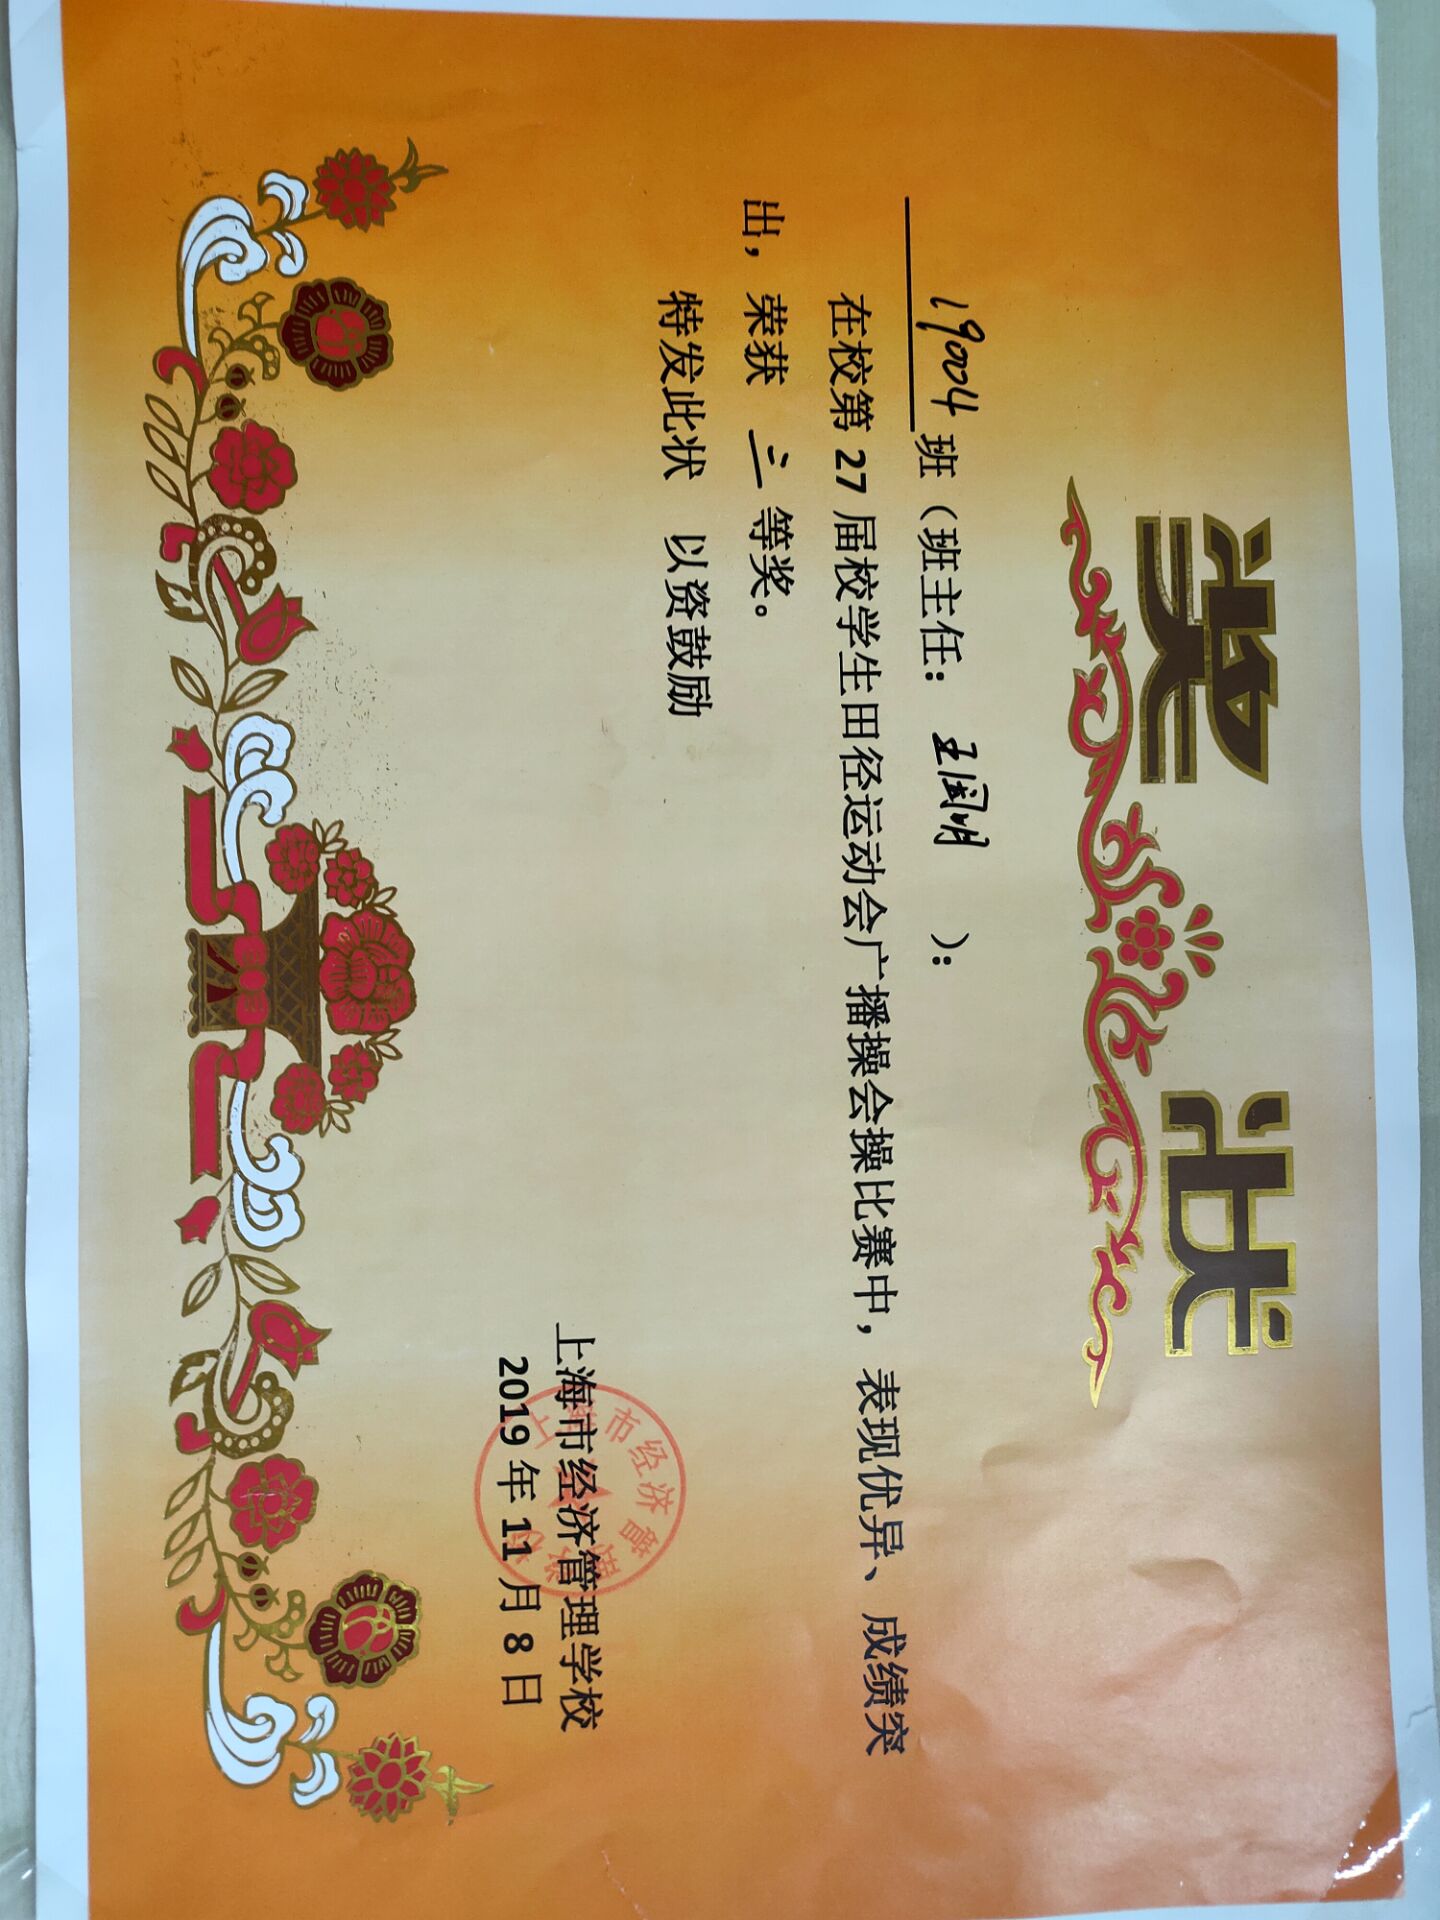 奖状
19004班（班主任： 王国明 ）：
在校第 27 届校学生田径运动会广播操会操比赛中，表现优异、成绩突
出，荣获 三 等奖。
特发此状 以资鼓励
上海市经济管理学校
2019 年 11 月 8 日
上海市经济管理学校